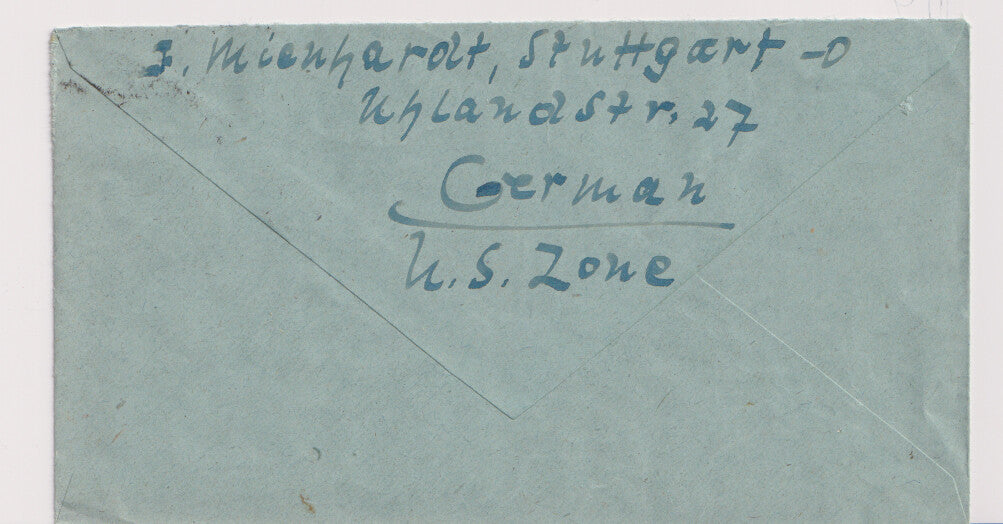 J. Mienhardt, Stuttgart -O
Uhlandstr. 27
German
U.S. Zone